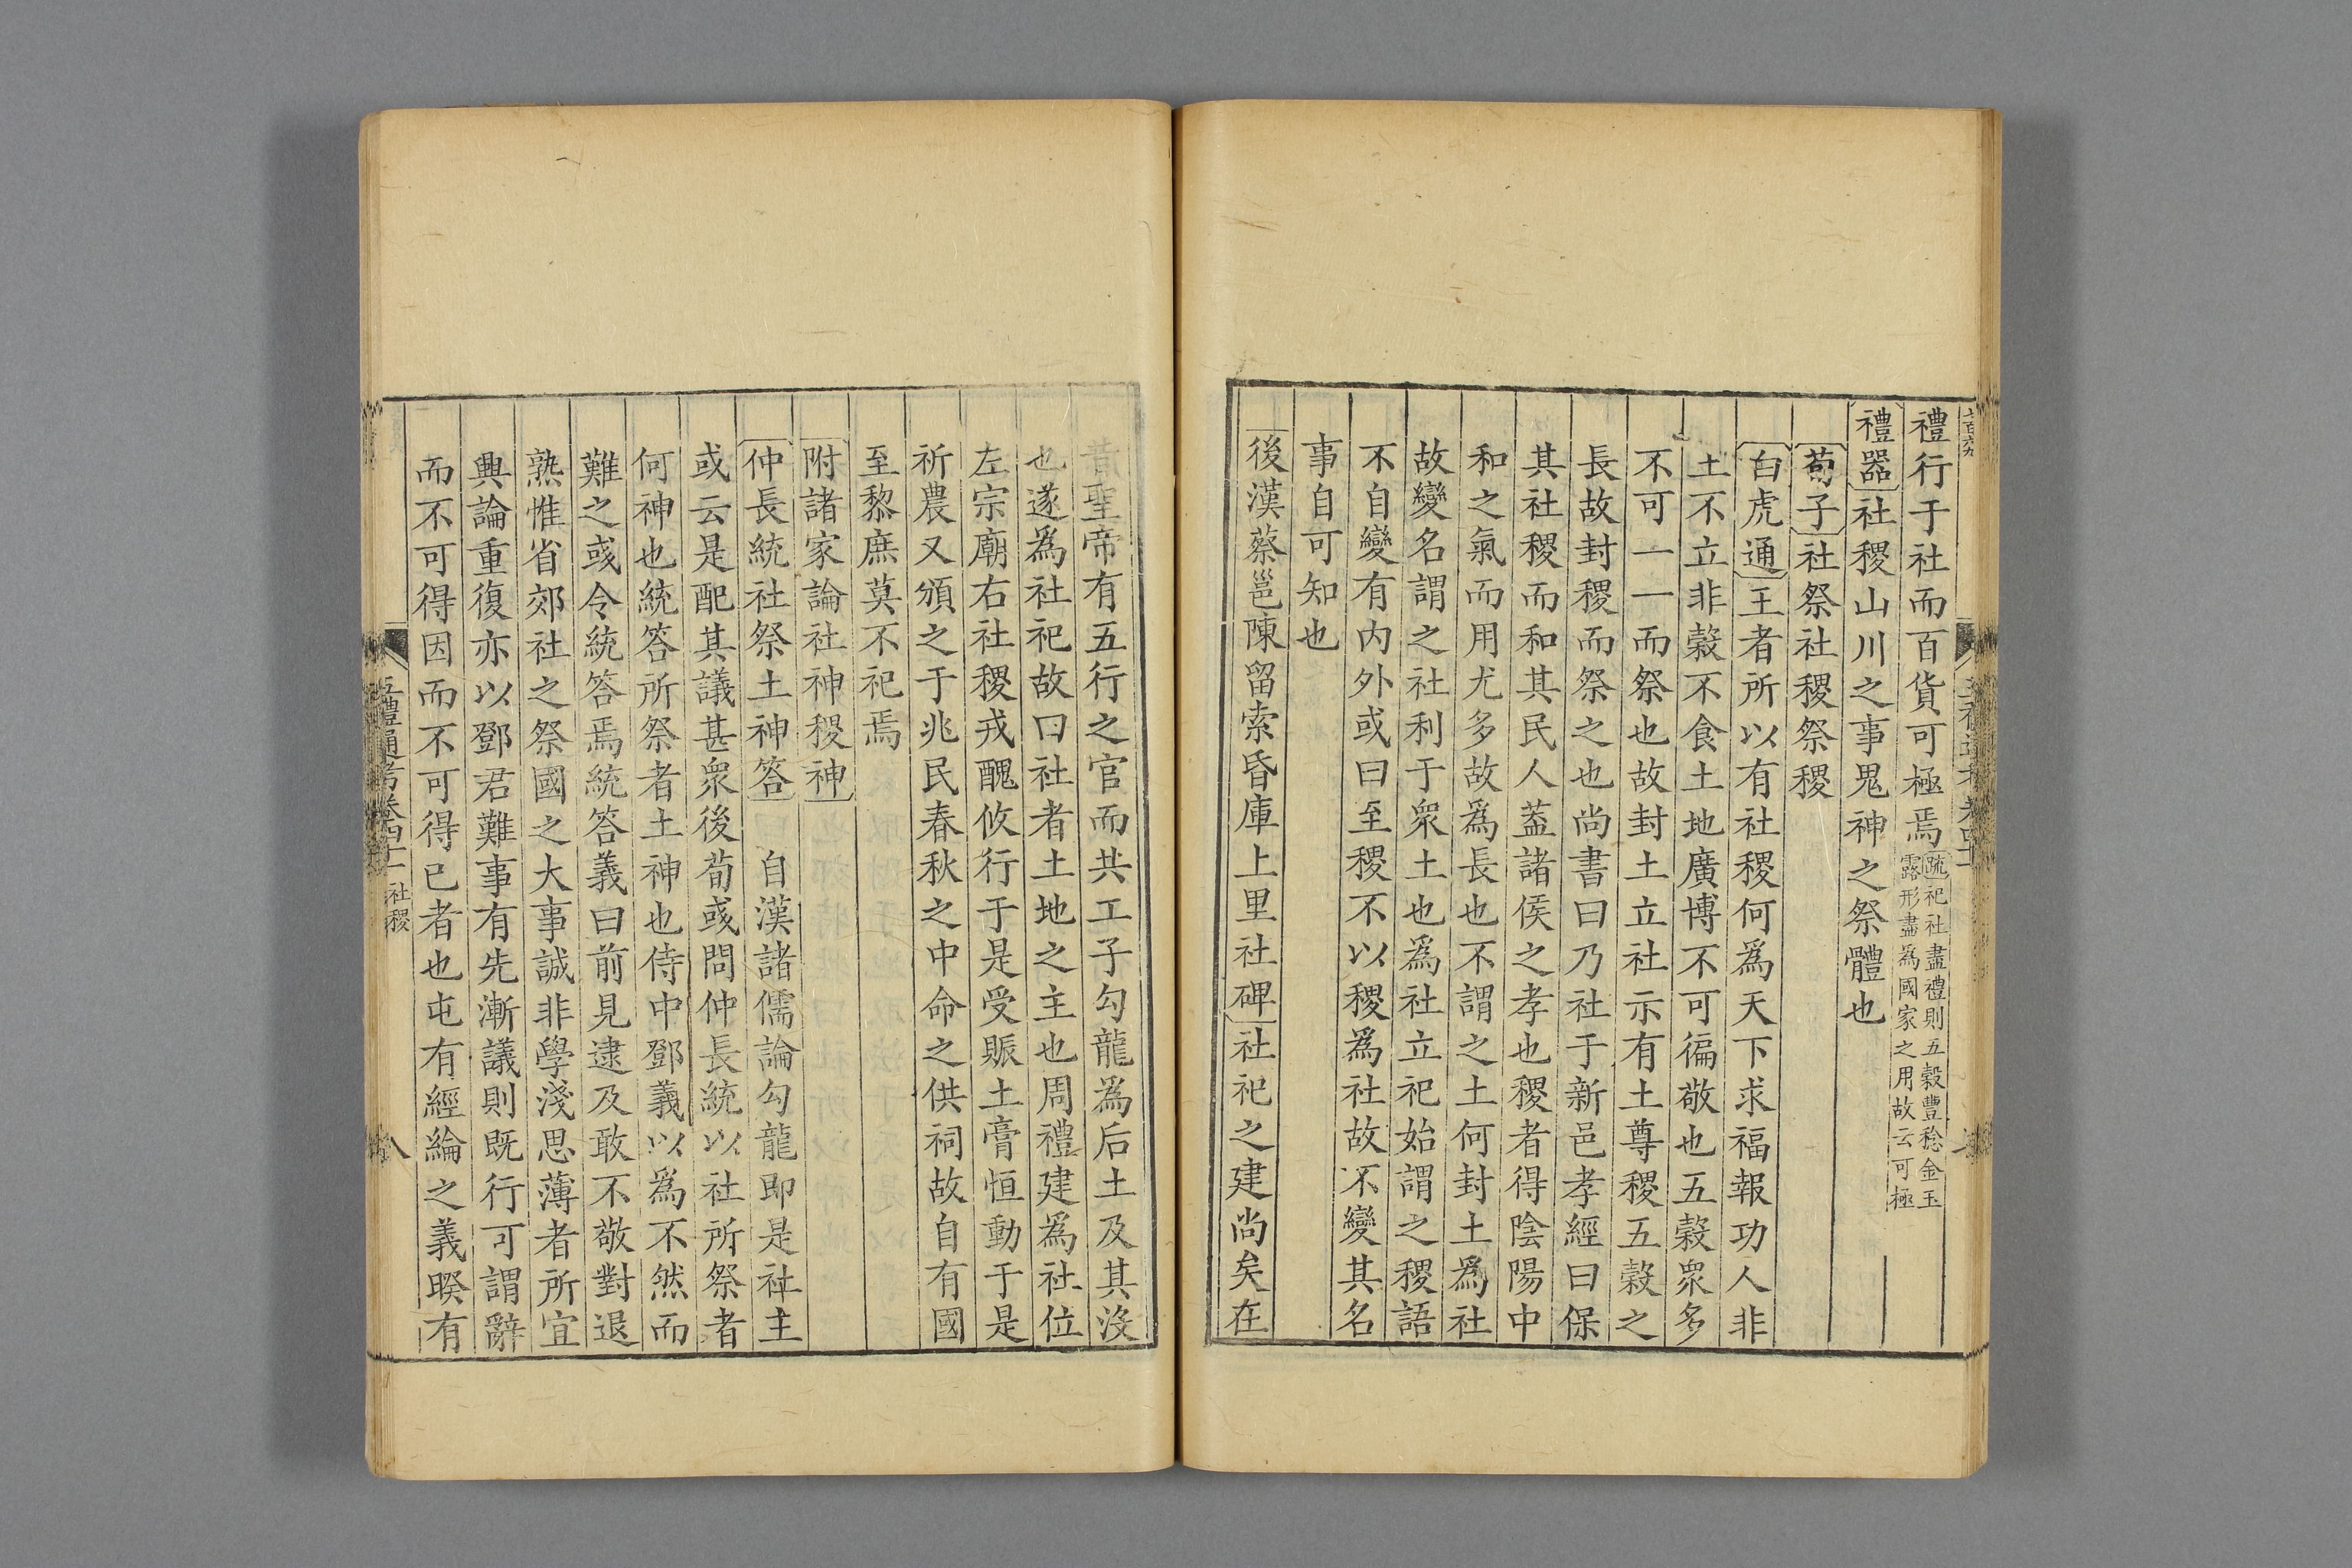 禮行于社而百貨可極焉疏祀社盡禮則五穀豐稔金玉露形盡為國家之用故云可極
禮器社稷山川之事鬼神之祭體也
荀子社祭社稷祭稷
白虎通王者所以有社稷何為天下求福報功人非
土不立非穀不食土地廣博不可徧敬也五穀眾多
不可一一而祭也故封土立社示有土尊稷五穀之
長故封稷而祭之也尚書曰乃社于新邑孝經曰保
其社稷而和其民人蓋諸侯之孝也稷者得陰陽中
和之氣而用尤多故為長也不謂之土何封土為社
故變名謂之社利于眾土也為社立祀始謂之稷語
不自變有內外或曰至稷不以稷為社故不變其名
事自可知也
後漢蔡邕陳留索昏庫上里社碑社祀之建尚矣在
昔聖帝有五行之官而共工子勾龍為后土及其沒
也遂為社祀故曰社者土地之主也周禮建為社位
左宗廟右社稷戎醜攸行于是受賑土膏恒動于是
祈農又頒之于兆民春秋之中命之供祠故自有國
至黎庶莫不祀焉
附諸家論社神稷神
仲長統社祭土神答　自漢諸儒論勾龍即是社主
或云是配其議甚眾後荀彧問仲長統以社所祭者
何神也統答所祭者土神也侍中鄧義以為不然而
難之彧令統答焉統答義曰前見逮及敢不敬對退
熟惟省郊社之祭國之大事誠非學淺思薄者所宜
興論重復亦以鄧君難事有先漸議則既行可謂辭
而不可得因而不可得已者也屯有經綸之義睽有
五禮通考卷四十一 社稷
八